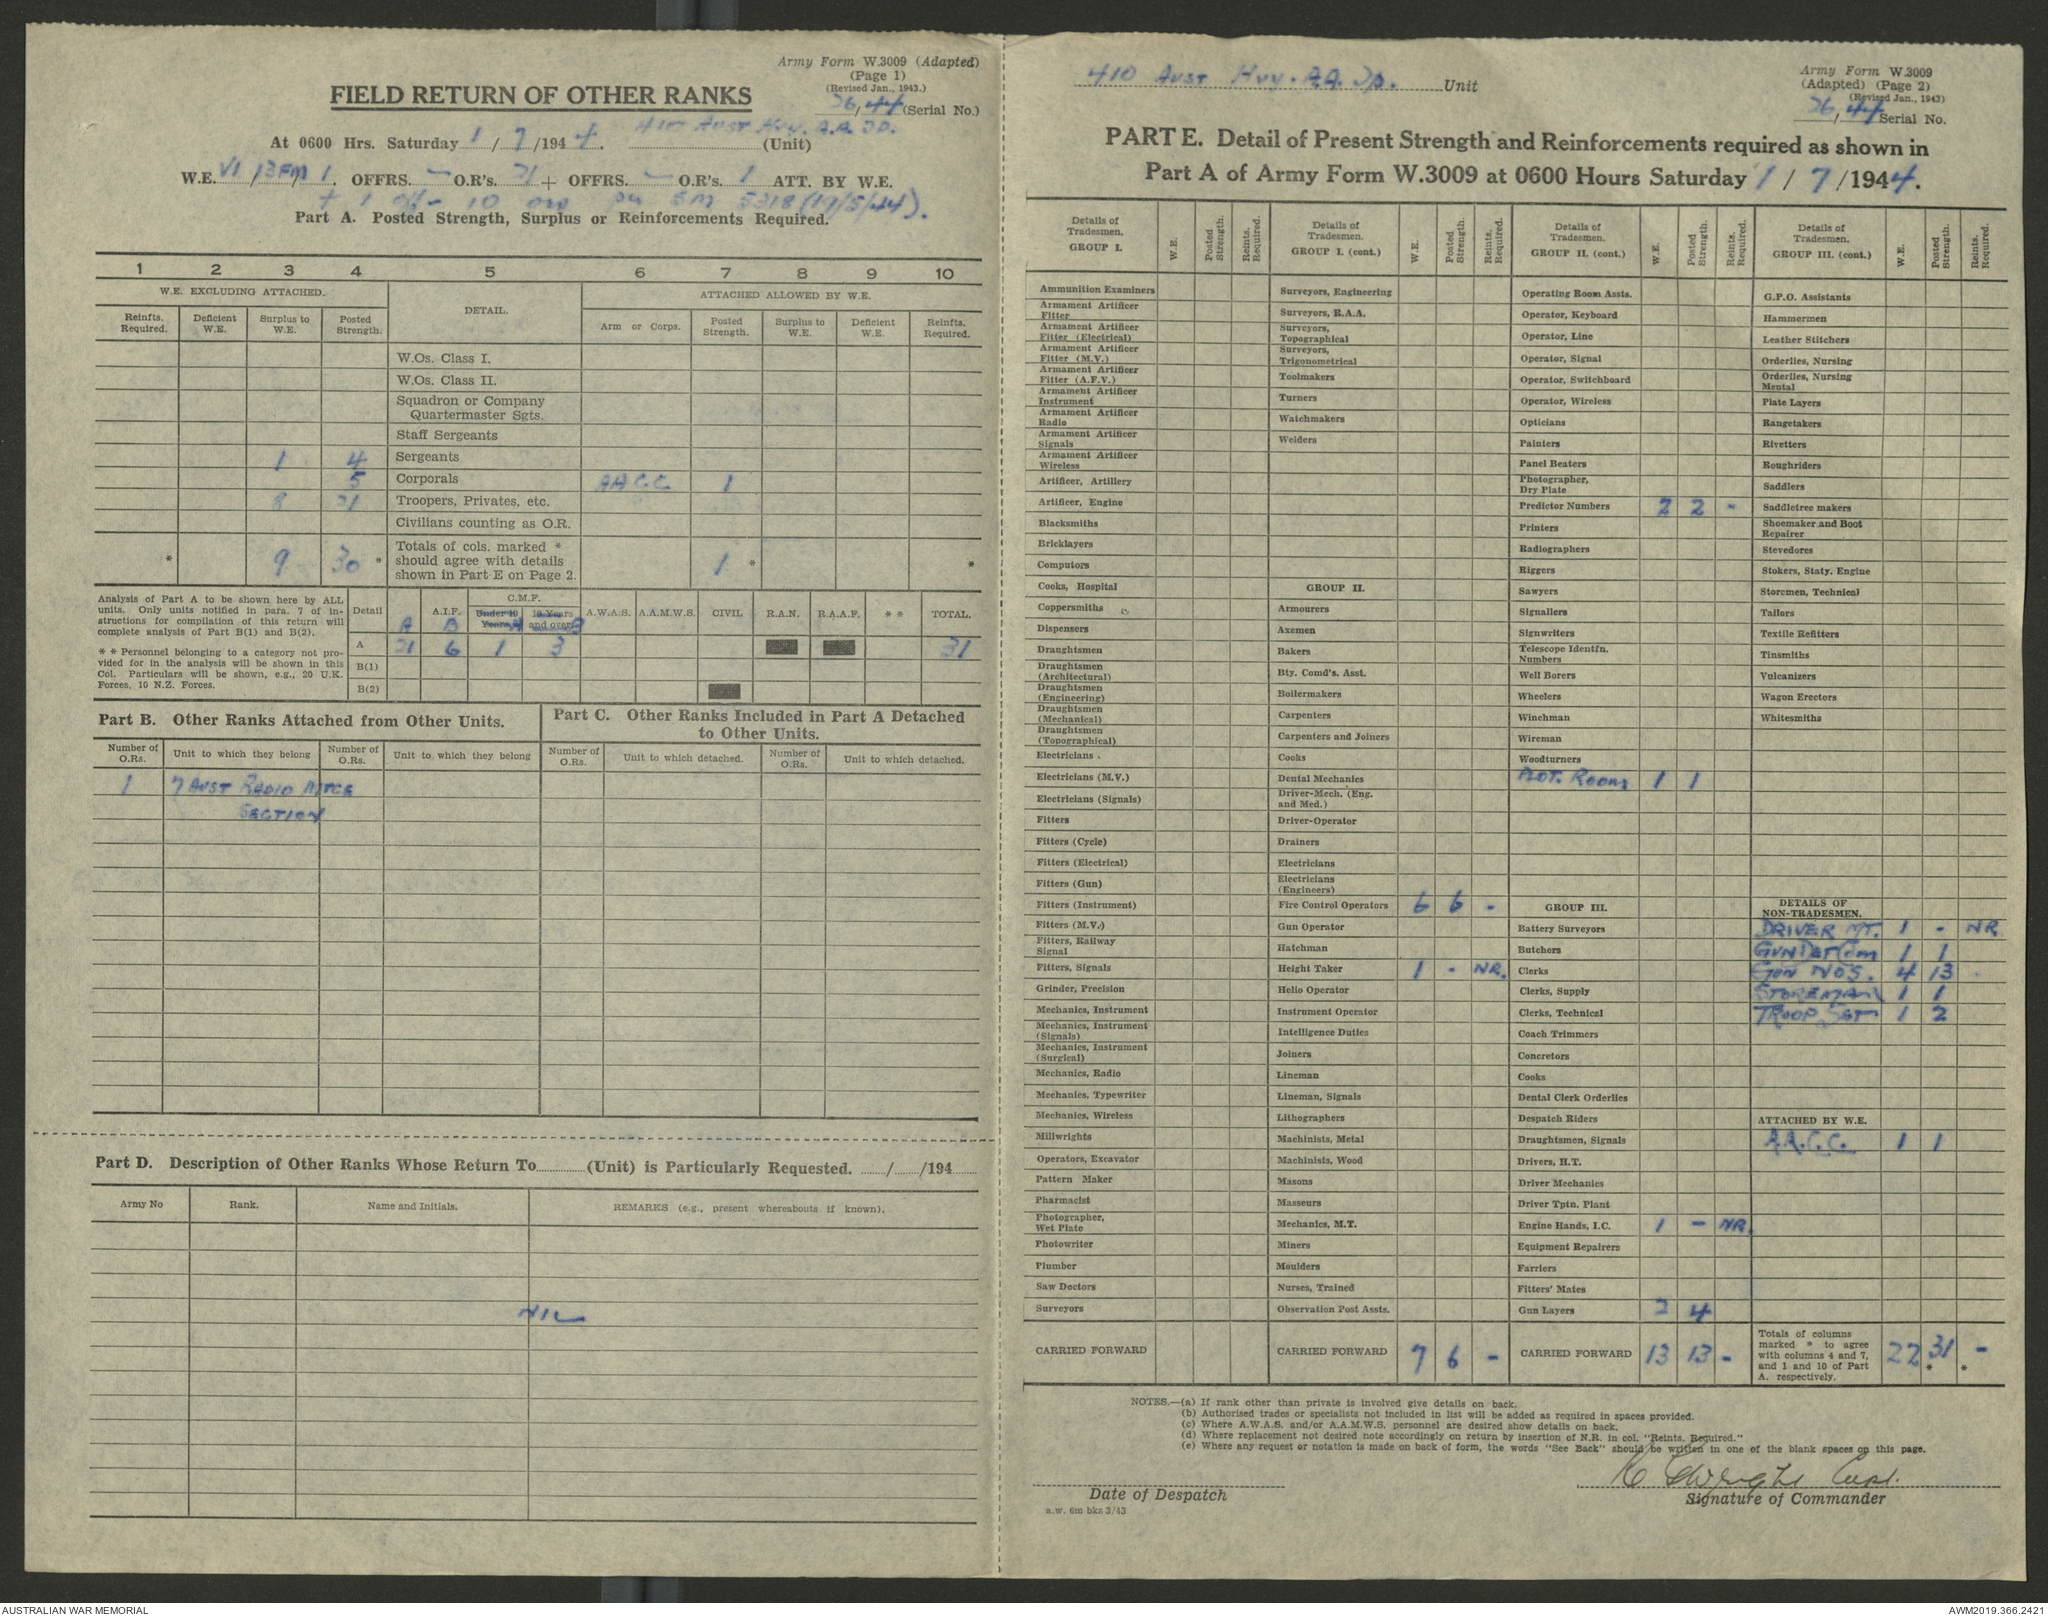 Army Form W.3009 (Adapted)
(Page 1)
(Revised Jan., 1943.)
FIELD RETURN OF OTHER RANKS
26/44 (Serial No.)
At 0600 Hrs. Saturday 1/7/1944. 410 Aust Hvy. A.A. (Unit)
W.E. VI/13FM/1. OFFRS. — O.R's. 21 + OFFRS. — O.R's. 1 ATT. BY W.E.
+ 1 off - 10 ors per SM 5318 (19/5/44).
Part A. Posted Strength, Surplus or Reinforcements Required.
1 2 3 4 5 6 7 8 9 10
W.E. EXCLUDING ATTACHED. DETAIL. ATTACHED ALLOWED BY W.E.
Reinfts. Required. Deficient W.E. Surplus to W.E. Posted Strength. Arm or Corps. Posted Strength. Surplus to W.E. Deficient W.E. Reinfts. Required.
W.Os. Class I.
W.Os. Class II.
Squadron or Company
Quartermaster Sgts.
Staff Sergeants
1 4 Sergeants
5 Corporals AACC 1
8 21 Troopers, Privates, etc.
Civilians counting as O.R.
* 9 30 * Totals of cols. marked * should agree with details shown in Part E on Page 2. 1 * *
Analysis of Part A to be shown here by ALL
units. Only units notified in para. 7 of in-
structions for compilation of this return will
complete analysis of Part B(1) and B(2).
* * Personnel belonging to a category not pro-
vided for in the analysis will be shown in this
Col. Particulars will be shown, e.g., 20 U.K.
Forces, 10 N.Z. Forces.
Detail A.I.F. C.M.F. Under 19 Years 19 Years and over A.W.A.S. A.A.M.W.S. CIVIL R.A.N. R.A.A.F. * * TOTAL
A B A B
A 21 6 1 3 31
B(1)
B(2)
Part B. Other Ranks Attached from Other Units.
Number of O.Rs. Unit to which they belong Number of O.Rs. Unit to which they belong
1 7 AUST RADIO MTCE
SECTION
Part C. Other Ranks Included in Part A Detached
to Other Units.
Number of O.Rs. Unit to which detached. Number of O.Rs. Unit to which detached.
Part D. Description of Other Ranks Whose Return To............(Unit) is Particularly Requested. ....../....../194......
Army No Rank. Name and Initials. REMARKS (e.g., present whereabouts if known).
NIL
410 Aust Hvy. A.A. Unit
Army Form W.3009
(Adapted) (Page 2)
(Revised Jan., 1943)
26/44 Serial No.
PART E. Detail of Present Strength and Reinforcements required as shown in
Part A of Army Form W.3009 at 0600 Hours Saturday 1/7/1944.
Details of Tradesmen. GROUP I. W.E. Posted Strength. Reints. Required.
Ammunition Examiners
Armament Artificer Fitter
Armament Artificer Fitter (Electrical)
Armament Artificer Fitter (M.V.)
Armament Artificer Fitter (A.F.V.)
Armament Artificer Instrument
Armament Artificer Radio
Armament Artificer Signals
Armament Artificer Wireless
Artificer, Artillery
Artificer, Engine
Blacksmiths
Bricklayers
Computors
Cooks, Hospital
Coppersmiths
Dispensers
Draughtsmen
Draughtsmen (Architectural)
Draughtsmen (Engineering)
Draughtsmen (Mechanical)
Draughtsmen (Topographical)
Electricians
Electricians (M.V.)
Electricians (Signals)
Fitters
Fitters (Cycle)
Fitters (Electrical)
Fitters (Gun)
Fitters (Instrument)
Fitters (M.V.)
Fitters, Railway Signal
Fitters, Signals
Grinder, Precision
Mechanics, Instrument
Mechanics, Instrument (Signals)
Mechanics, Instrument (Surgical)
Mechanics, Radio
Mechanics, Typewriter
Mechanics, Wireless
Millwrights
Operators, Excavator
Pattern Maker
Pharmacist
Photographer, Wet Plate
Photowriter
Plumber
Saw Doctors
Surveyors
CARRIED FORWARD
Details of Tradesmen. GROUP I. (cont.) W.E. Posted Strength. Reints. Required.
Surveyors, Engineering
Surveyors, R.A.A.
Surveyors, Topographical
Surveyors, Trigonometrical
Toolmakers
Turners
Watchmakers
Welders
GROUP II.
Armourers
Axemen
Bakers
Bty. Comd's. Asst.
Boilermakers
Carpenters
Carpenters and Joiners
Cooks
Dental Mechanics
Driver-Mech. (Eng. and Med.)
Driver-Operator
Drainers
Electricians
Electricians (Engineers)
Fire Control Operators 6 6 -
Gun Operator
Hatchman
Height Taker 1 - NR.
Helio Operator
Instrument Operator
Intelligence Duties
Joiners
Lineman
Lineman, Signals
Lithographers
Machinists, Metal
Machinists, Wood
Masons
Masseurs
Mechanics, M.T.
Miners
Moulders
Nurses, Trained
Observation Post Assts.
CARRIED FORWARD 7 6 -
Details of Tradesmen. GROUP II. (cont.) W.E. Posted Strength. Reints. Required.
Operating Room Assts.
Operator, Keyboard
Operator, Line
Operator, Signal
Operator, Switchboard
Operator, Wireless
Opticians
Painters
Panel Beaters
Photographer, Dry Plate
Predictor Numbers 2 2 -
Printers
Radiographers
Riggers
Sawyers
Signallers
Signwriters
Telescope Identfn. Numbers
Well Borers
Wheelers
Winchman
Wireman
Woodturners
PLOT. ROOM 1 1
GROUP III.
Battery Surveyors
Butchers
Clerks
Clerks, Supply
Clerks, Technical
Coach Trimmers
Concretors
Cooks
Dental Clerk Orderlies
Despatch Riders
Draughtsmen, Signals
Drivers, H.T.
Driver Mechanics
Driver Tptn. Plant
Engine Hands, I.C. 1 - NR.
Equipment Repairers
Farriers
Fitters' Mates
Gun Layers 2 4
CARRIED FORWARD 13 13 -
Details of Tradesmen. GROUP III. (cont.) W.E. Posted Strength. Reints. Required.
G.P.O. Assistants
Hammermen
Leather Stitchers
Orderlies, Nursing
Orderlies, Nursing Mental
Plate Layers
Rangetakers
Rivetters
Roughriders
Saddlers
Saddletree makers
Shoemaker and Boot Repairer
Stevedores
Stokers, Staty. Engine
Storemen, Technical
Tailors
Textile Refitters
Tinsmiths
Vulcanizers
Wagon Erectors
Whitesmiths
DETAILS OF NON-TRADESMEN.
DRIVER MT. 1 - NR
GUN DET COM 1 1
GUN NOS. 4 13
STOREMAN 1 1
TROOP SGT 1 2
ATTACHED BY W.E.
A.A.C.C. 1 1
Totals of columns marked * to agree with columns 4 and 7, and 1 and 10 of Part A. respectively. 22 31 * - *
NOTES.—(a) If rank other than private is involved give details on back.
(b) Authorised trades or specialists not included in list will be added as required in spaces provided.
(c) Where A.W.A.S. and/or A.A.M.W.S. personnel are desired show details on back.
(d) Where replacement not desired note accordingly on return by insertion of N.R. in col. "Reints. Required."
(e) Where any request or notation is made on back of form, the words "See Back" should be written in one of the blank spaces on this page.
Capt.
Date of Despatch
Signature of Commander
a.w. 6m bks 3/43
AUSTRALIAN WAR MEMORIAL
AWM2019.366.2421